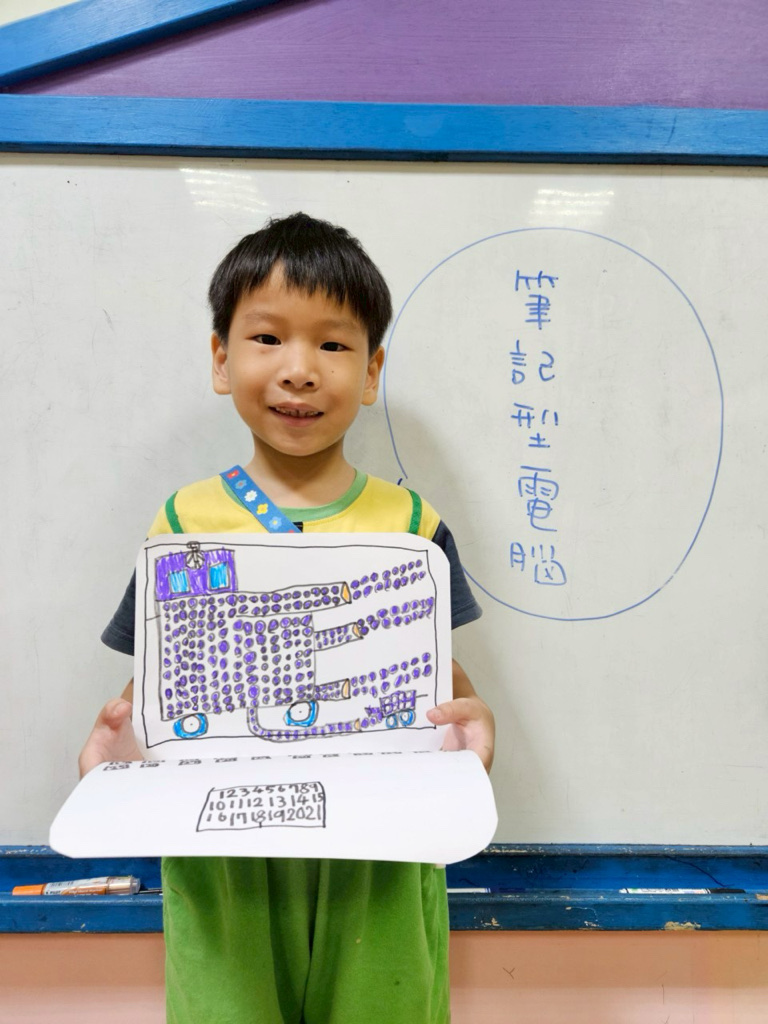 筆記型電腦
123456789
101112131415
161718192021